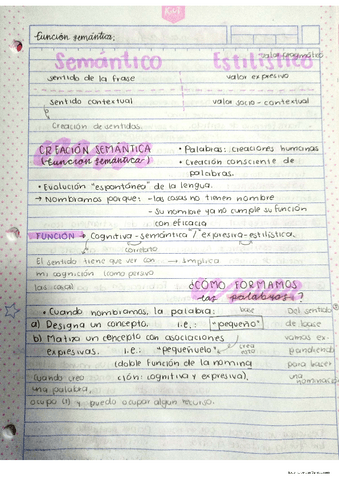 función semántica.
Semántico Estilístico
valor pragmático
sentido de la frase valor expresivo
sentido contextual valor socio-contextual
Creación de sentidos.
CREACIÓN SEMÁNTICA • Palabras: creaciones humanas
(función semántica) • Creación consciente de
palabras.
• Evolución "espontánea" de la lengua.
→ Nombramos porque: - las cosas no tienen nombre
- Su nombre ya no cumple su función
con eficacia
FUNCIÓN → Cognitiva-semántica / expresiva-estilística.
correlato
El sentido tiene que ver con → implica
mi cognición (como percivo
las cosas) ¿CÓMO FORMAMOS
las palabras?
• Cuando nombramos, la palabra: base Del sentido
a) Designa un concepto. i.e.: "pequeño" de base
b) Matiza un concepto con asociaciones vamos ex-
expresivas. i.e.: "pequeñuelo" crea pandiendo
(doble función de la nomina para hacer
Cuando creo ción: cognitiva y expresiva). una
una palabra, nominación
ocupo (1) y puedo ocupar algún recurso.